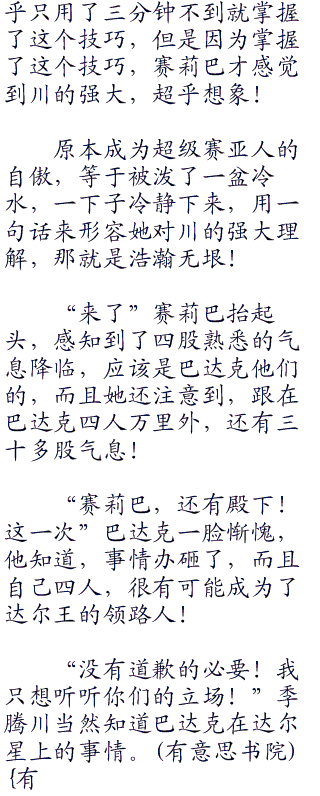 乎只用了三分钟不到就掌握
了这个技巧，但是因为掌握
了这个技巧，赛莉巴才感觉
到川的强大，超乎想象！
原本成为超级赛亚人的
自傲，等于被泼了一盆冷
水，一下子冷静下来，用一
句话来形容她对川的强大理
解，那就是浩瀚无垠！
“来了”赛莉巴抬起
头，感知到了四股熟悉的气
息降临，应该是巴达克他们
的，而且她还注意到，跟在
巴达克四人万里外，还有三
十多股气息！
“赛莉巴，还有殿下！
这一次”巴达克一脸惭愧，
他知道，事情办砸了，而且
自己四人，很有可能成为了
达尔王的领路人！
“没有道歉的必要！我
只想听听你们的立场！”季
腾川当然知道巴达克在达尔
星上的事情。(有意思书院)
{有